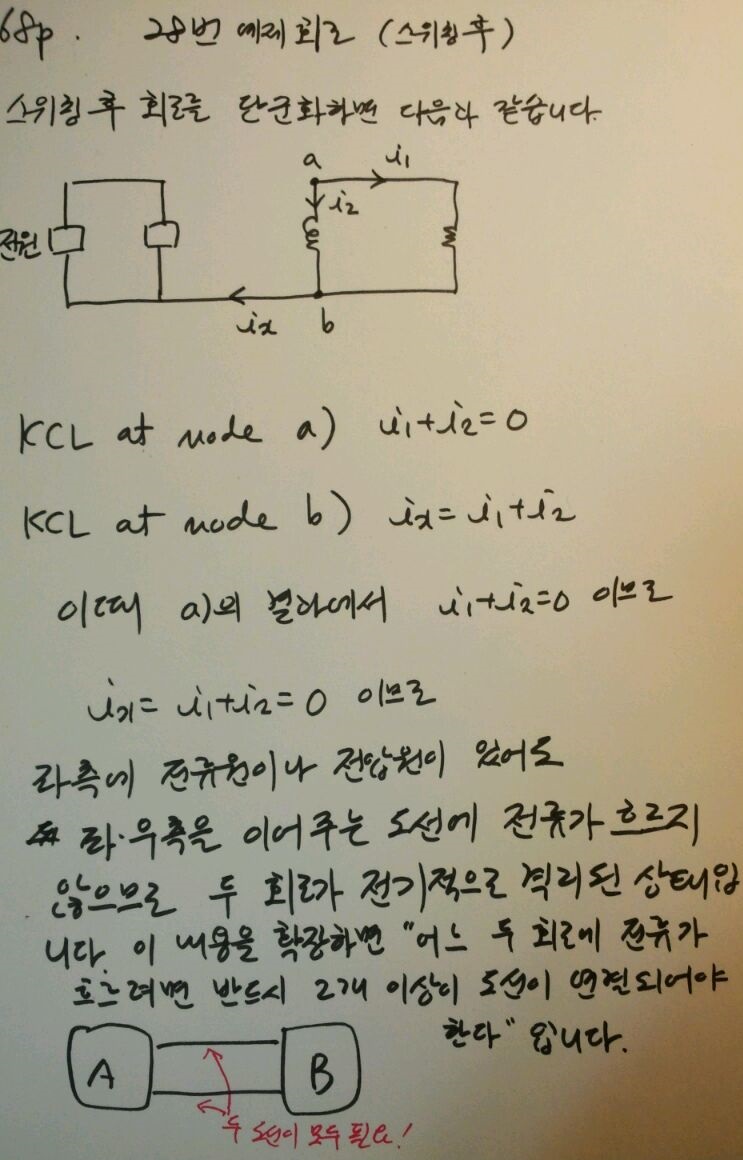 68p. 28번 예제 회로 (스위칭 후)
스위칭 후 회로를 단순화하면 다음과 같습니다.
a i₁
i₂
전원
ix b
KCL at node a) i₁+i₂=0
KCL at node b) ix= i₁+i₂
이때 a)의 결과에서 i₁+i₂=0 이므로
ix= i₁+i₂=0 이므로
좌측에 전류원이나 전압원이 있어도
좌·우측을 이어주는 도선에 전류가 흐르지
않으므로 두 회로가 전기적으로 격리된 상태입
니다. 이 내용을 확장하면 "어느 두 회로에 전류가
흐르려면 반드시 2개 이상의 도선이 연결되어야
한다" 입니다.
A B
두 도선이 모두 필요!